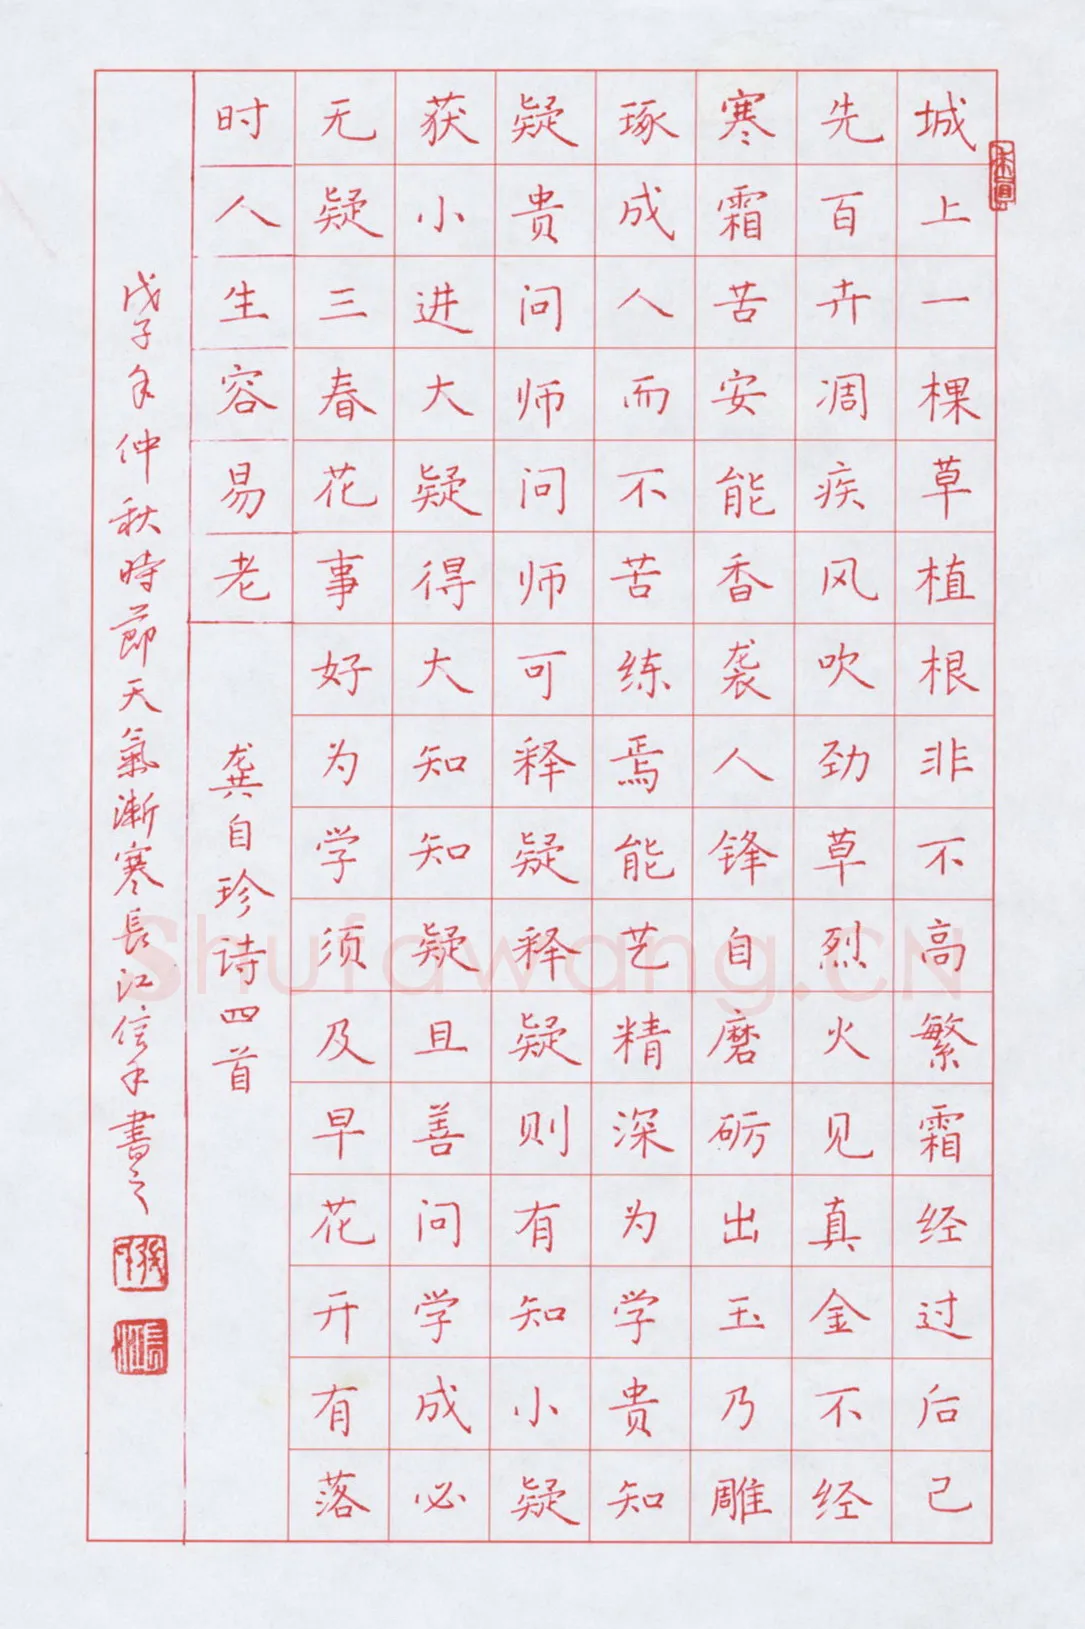 城上一棵草植根非不高繁霜经过后己
先百卉凋疾风吹劲草烈火见真金不经
寒霜苦安能香袭人锋自磨砺出玉乃雕
琢成人而不苦练焉能艺精深为学贵知
疑贵问师问师可释疑释疑则有知小疑
获小进大疑得大知知疑且善问学成必
无疑三春花事好为学须及早花开有落
时人生容易老
龚自珍诗四首
戊子年仲秋時節天氣漸寒長江信手書之
Shufawang.CN